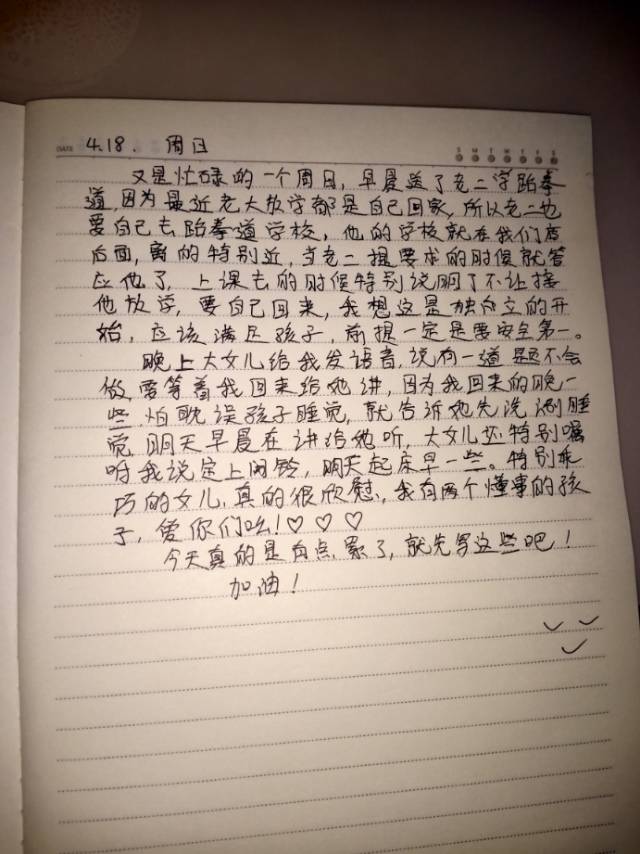 4.18. 周日
DATE
S M T W T F S
又是忙碌的一个周日，早晨送了老二学跆拳
道，因为最近老大放学都是自己回家，所以老二也
要自己去跆拳道学校，他的学校就在我们店
后面，离的特别近，当老二提要求的时候就答
应他了，上课去的时候特别说明了不让接
他放学，要自己回来，我想这是独立的开
始，应该满足孩子，前提一定是要安全第一。
晚上大女儿给我发语音，说有一道题不会
做，要等着我回来给她讲，因为我回来的晚一
些，怕耽误孩子睡觉，就告诉她先洗漱睡
觉，明天早晨在讲给她听，大女儿还特别嘱
咐我说定上闹铃，明天起床早一些。特别乖
巧的女儿，真的很欣慰，我有两个懂事的孩
子，爱你们吆！♡♡♡
今天真的是有点累了，就先写这些吧！
加油！